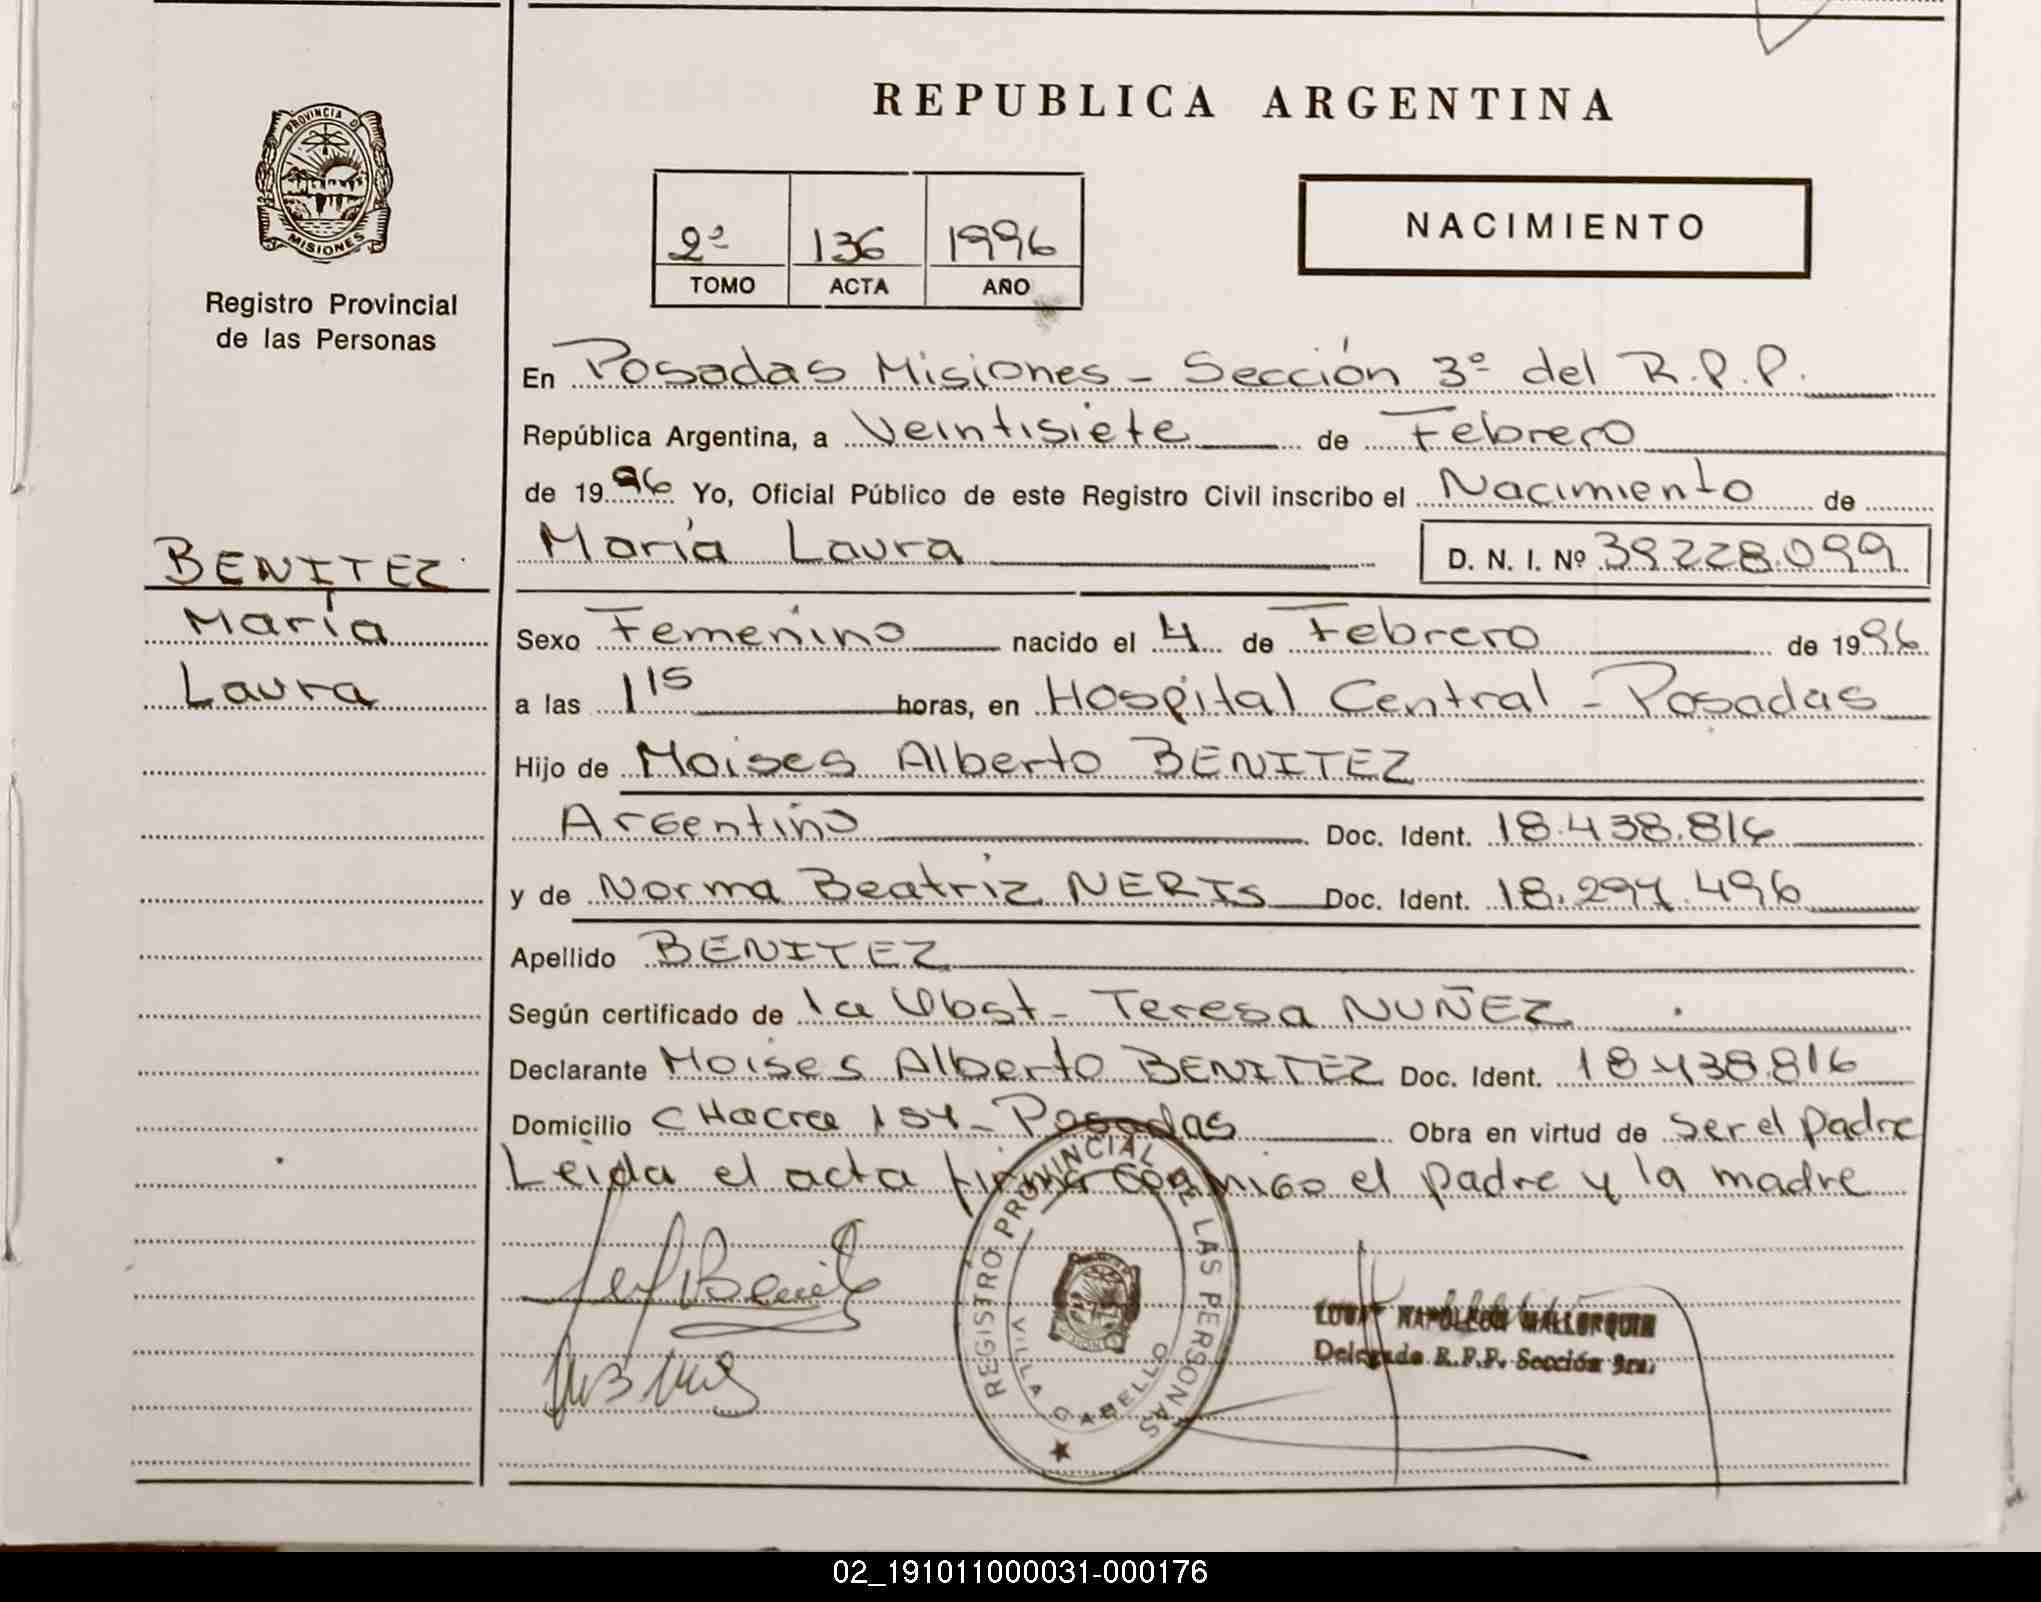 REPUBLICA ARGENTINA
PROVINCIA D
MISIONES
Registro Provincial
de las Personas
2º 136 1996
TOMO ACTA AÑO
NACIMIENTO
En Posadas Misiones - Sección 3º del R.P.P.
República Argentina, a Veintisiete de Febrero
de 1996 Yo, Oficial Público de este Registro Civil inscribo el Nacimiento de
María Laura D. N. I. Nº 39.228.099
BENITEZ
María
Laura
Sexo Femenino nacido el 4 de Febrero de 1996
a las 1 15 horas, en Hospital Central - Posadas
Hijo de Moises Alberto BENITEZ
Argentino Doc. Ident. 18.438.816
y de Norma Beatriz NERIS Doc. Ident. 18.297.496
Apellido BENITEZ
Según certificado de la Obst- Teresa NUÑEZ
Declarante Moises Alberto BENITEZ Doc. Ident. 18.438.816
Domicilio CHacra 154- Posadas Obra en virtud de ser el padre
Leida el acta firma conmigo el padre y la madre
REGISTRO PROVINCIAL DE LAS PERSONAS
VILLA CABELLO
NAPOLEON MALLORQUIN
Delegado R.P.P. Sección 3ra.
02_191011000031-000176